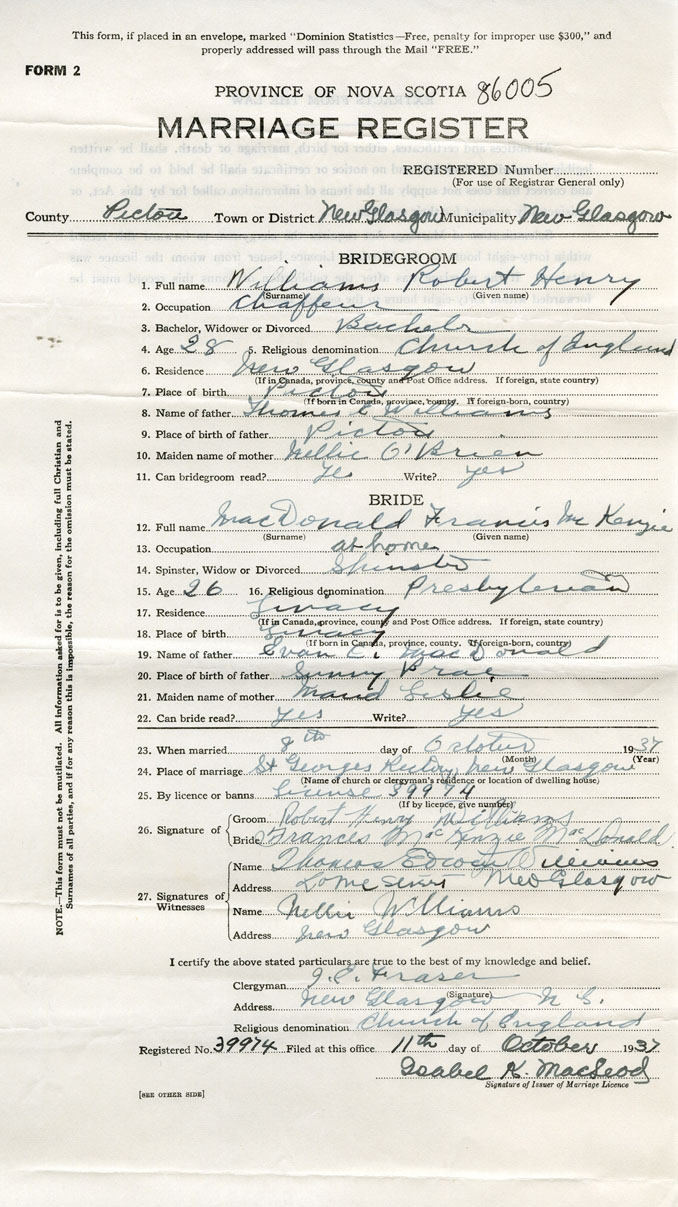 This form, if placed in an envelope, marked "Dominion Statistics—Free, penalty for improper use $300," and
properly addressed will pass through the Mail "FREE."
FORM 2
PROVINCE OF NOVA SCOTIA 86005
MARRIAGE REGISTER
REGISTERED Number
(For use of Registrar General only)
County Pictou Town or District New Glasgow Municipality New Glasgow
BRIDEGROOM
1. Full name Williams Robert Henry
(Surname) (Given name)
2. Occupation Chaffeur
3. Bachelor, Widower or Divorced Bachelor
4. Age 28 5. Religious denomination Church of England
6. Residence New Glasgow
(If in Canada, province, county and Post Office address. If foreign, state country)
7. Place of birth Pictou
(If born in Canada, province, county. If foreign-born, country)
8. Name of father Thomas E Williams
9. Place of birth of father Pictou
10. Maiden name of mother Nellie O'Brien
11. Can bridegroom read? Yes Write? yes
BRIDE
12. Full name MacDonald Francis McKenzie
(Surname) (Given name)
13. Occupation at home
14. Spinster, Widow or Divorced Spinster
15. Age 26 16. Religious denomination Presbyterian
17. Residence
(If in Canada, province, county and Post Office address. If foreign, state country)
18. Place of birth
(If born in Canada, province, county. If foreign-born, country)
19. Name of father Evan E. MacDonald
20. Place of birth of father Sunny Brae
21. Maiden name of mother Maud Leslie
22. Can bride read? yes Write? yes
23. When married 8th day of October 1937
(Month) (Year)
24. Place of marriage St Georges Rectory, New Glasgow
(Name of church or clergyman's residence or location of dwelling house)
25. By licence or banns license 39974
(If by licence, give number)
26. Signature of Groom Robert Henry Williams
Bride Frances MacKenzie MacDonald
27. Signatures of Witnesses Name Thomas Edwin Williams
Address New Glasgow
Name Nellie Williams
Address New Glasgow
I certify the above stated particulars are true to the best of my knowledge and belief.
Clergyman J. E. Fraser
(Signature)
Address New Glasgow N S.
Religious denomination Church of England
Registered No. 39974 Filed at this office 11th day of October 1937
Isabel K. MacLeod
Signature of Issuer of Marriage Licence
[SEE OTHER SIDE]
NOTE.—This form must not be mutilated. All information asked for is to be given, including full Christian and
Surnames of all parties, and if for any reason this is impossible, the reason for the omission must be stated.